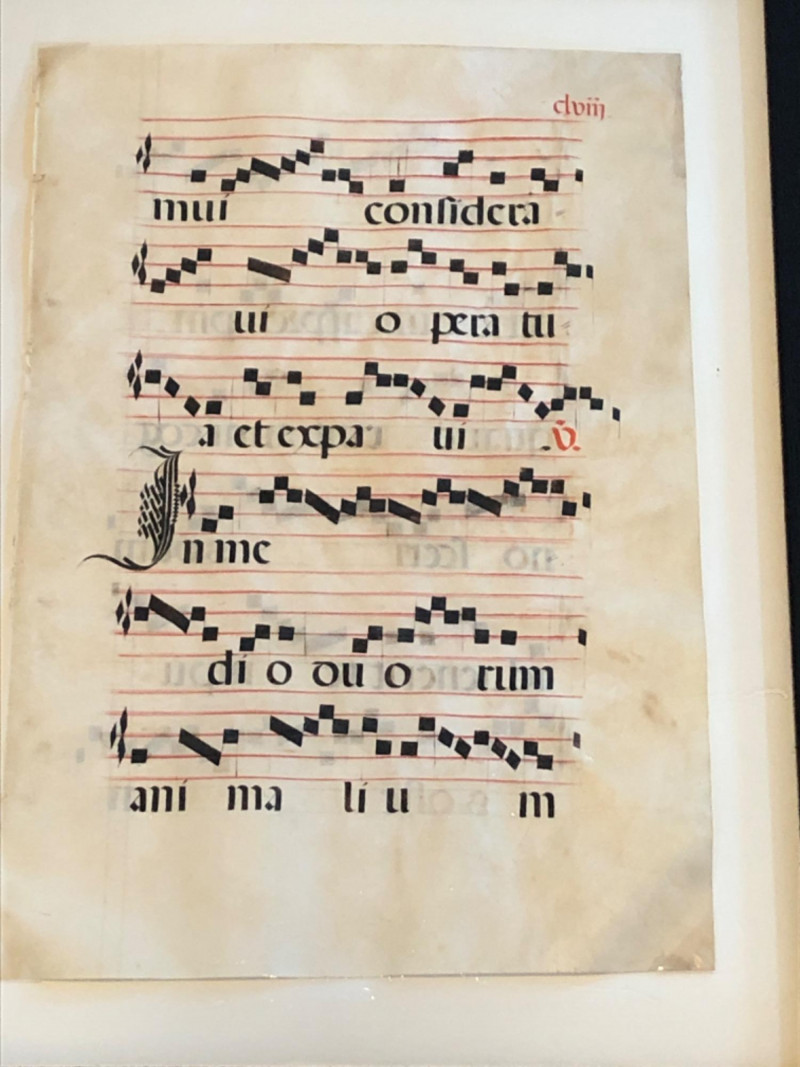 clviij
mui considera
ui o pera tu
a et expa ui .v̄.
In me
di o ou o rum
ani ma li u m